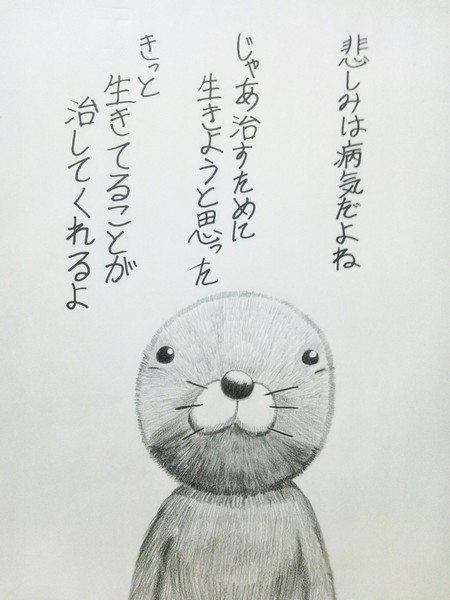 悲しみは病気だよね
じゃあ治すために
生きようと思った
きっと
生きてることが
治してくれるよ